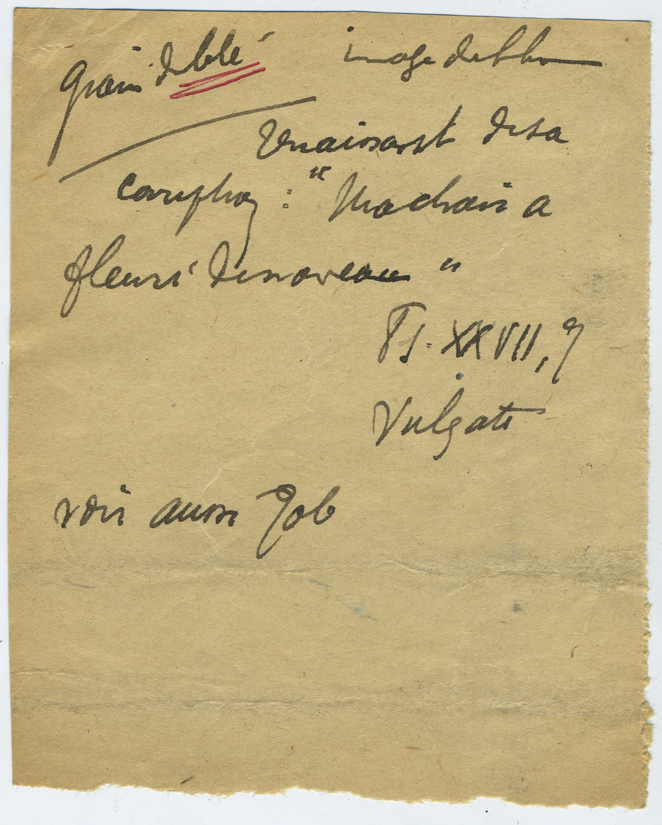 grain de blé image de l'homme
renaissant de sa
: "Ma chair a
fleuri de nouveau "
Ps. XXVII, 7
Vulgate
voir aussi Job